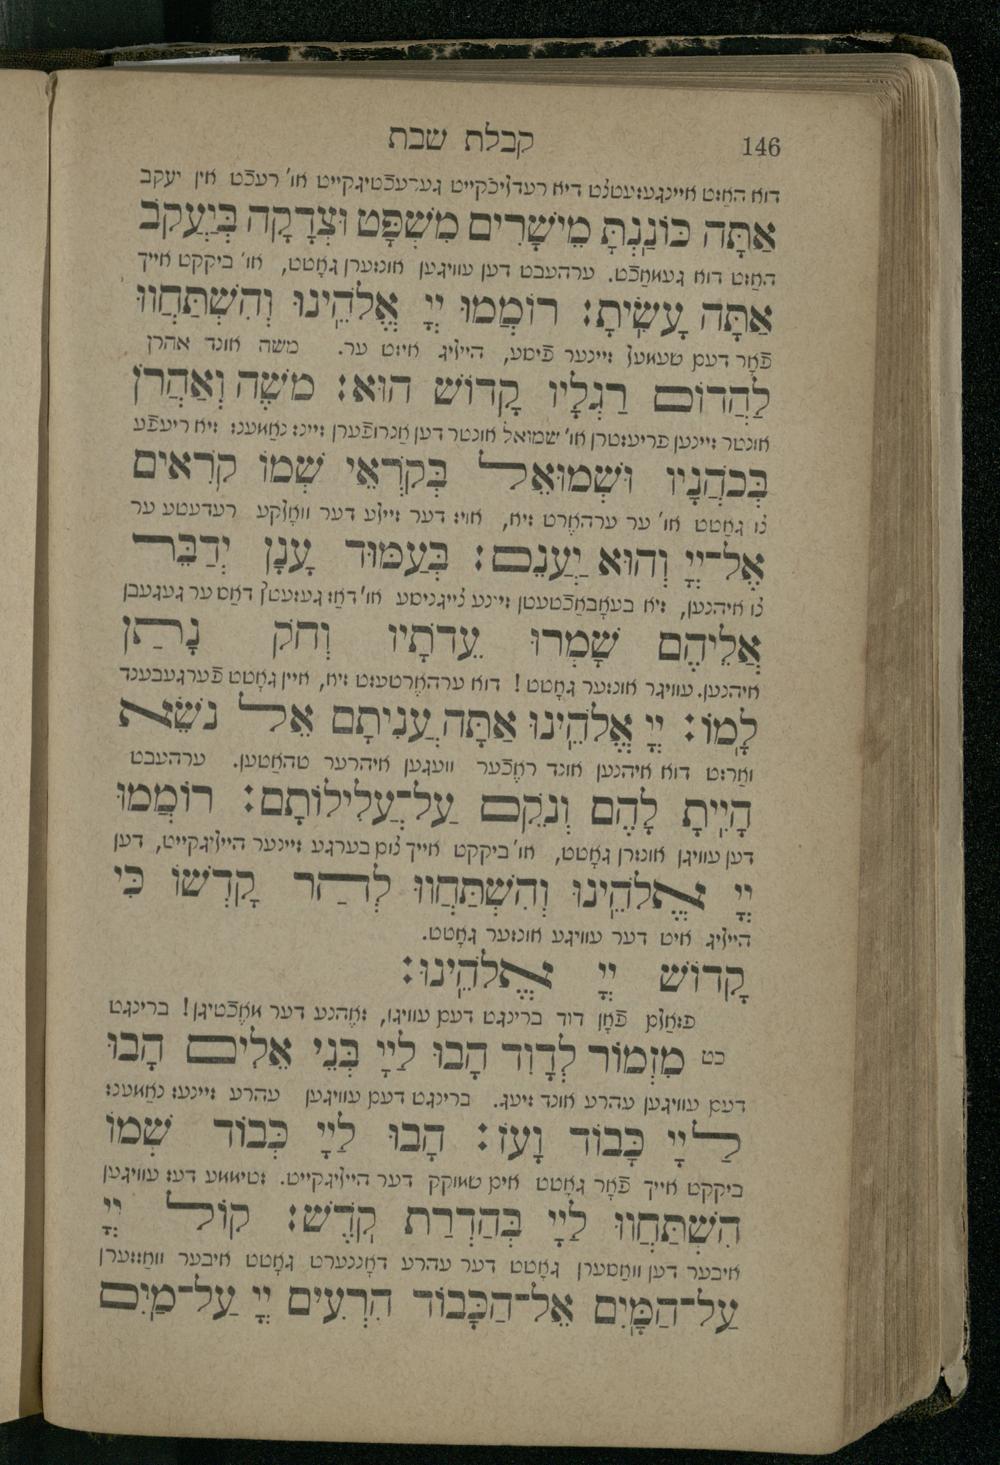 146 קבלת שבת
דוא האַזט איינגעזעטצט דיא רעדליכקייט גערעכטיגקייט או' רעכט אין יעקב
אַתָּה כּוֹנַנְתָּ מֵישָׁרִים מִשְׁפָּט וּצְדָקָה בְּיַעֲקֹב
האַזט דוא געמאַכט. ערהעבט דען עוויגען אונזערן גאָטט, או' ביקקט אייך
אַתָּה עָשִׂיתָ: רוֹמְמוּ יְיָ אֱלֹהֵינוּ וְהִשְׁתַּחֲווּ
פאָר דעם שעמעל זיינער פיסע, הייליג איזט ער. משה אונד אהרן
לַהֲדוֹם רַגְלָיו קָדוֹשׁ הוּא: מֹשֶׁה וְאַהֲרֹן
אונטר זיינען פריעזטרן או' שמואל אונטר דען אַנרופערן זיינז נאַמענז זיא ריעפע
בְּכֹהֲנָיו וּשְׁמוּאֵל בְּקֹרְאֵי שְׁמוֹ קֹרִאים
צו גאָטט או' ער ערהאָרט זיא, אויז דער זיילע דער וואָלקע רעדעטע ער
אֶל־יְיָ וְהוּא יַעֲנֵם: בְּעַמּוּד עָנָן יְדַבֵּר
צו איהנען, זיא בעאָבאַכטעטן זיינע צייגניסע או' דאַז געזעטץ דאַס ער געגעבן
אֲלֵיהֶם שָׁמְרוּ עֵדֹתָיו וְחֹק נָתַן
איהנען. עוויגר אונזער גאָטט! דוא ערהאָרטעזט זיא, איין גאָטט פערגעבענד
לָמוֹ: יְיָ אֱלֹהֵינוּ אַתָּה עֲנִיתָם אֵל נֹשֵׂא
וואַרזט דוא איהנען אונד ראֶכער וועגען איהרער טהאַטען. ערהעבט
הָיִיתָ לָהֶם וְנֹקֵם עַל־עֲלִילוֹתָם: רוֹמְמוּ
דען עוויגן אונזרן גאָטט, או' ביקקט אייך צום בערגע זיינער הייליגקייט, דען
יְיָ אֱלֹהֵינוּ וְהִשְׁתַּחֲווּ לְהַר קָדְשׁוֹ כִּי
הייליג איט דער עוויגע אונזער גאָטט.
קָדוֹשׁ יְיָ אֱלֹהֵינוּ:
פזאַלם פאָן דוד ברינגט דעם עוויגן, זאֶהנע דער מאֶכטיגן! ברינגט
כט מִזְמוֹר לְדָוִד הָבוּ לַייָ בְּנֵי אֵלִים הָבוּ
דעם עוויגען עהרע אונד זיעג. ברינגט דעם עוויגען עהרע זיינעז נאַמענז
לַייָ כָּבוֹד וָעֹז: הָבוּ לַייָ כְּבוֹד שְׁמוֹ
ביקקט אייך פאָר גאָטט אים שמוקק דער הייליגקייט. זטיממע דעז עוויגען
הִשְׁתַּחֲווּ לַייָ בְּהַדְרַת קֹדֶשׁ: קוֹל יְיָ
איבער דען וואַסערן גאָטט דער עהרע דאָננערט גאָטט איבער וואַזזערן
עַל־הַמָּיִם אֵל־הַכָּבוֹד הִרְעִים יְיָ עַל־מַיִם